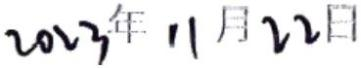 2023年11月22日